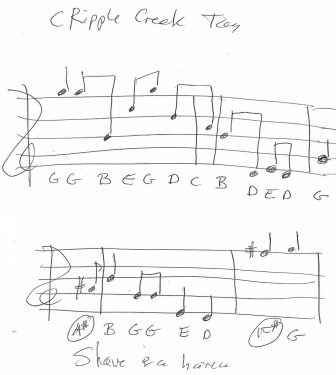 CRipple Creek Tag
G G B E G D C B D E D G
A# B G G E D F# G
Shave & a haircu